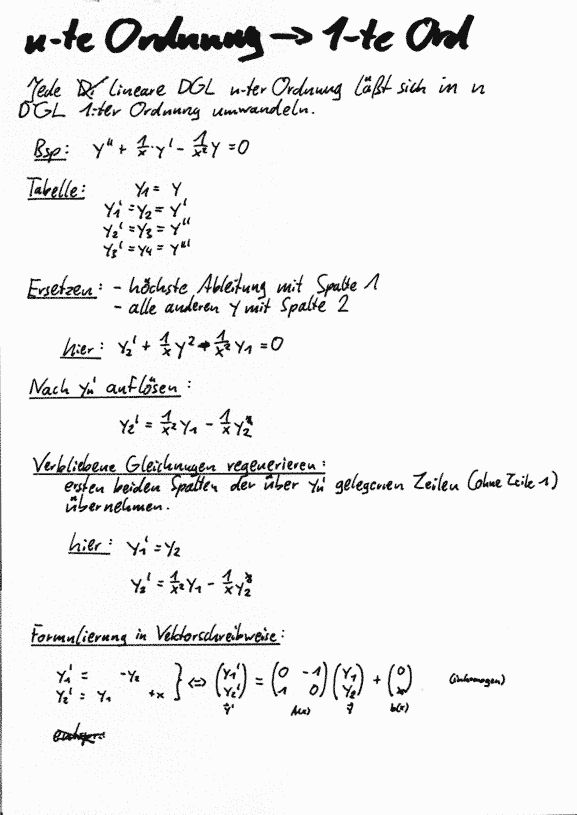 n-te Ordnung → 1-te Ord
Jede lineare DGL n-ter Ordnung läßt sich in n
DGL 1-ter Ordnung umwandeln.
Bsp: y'' + 1/x · y' - 1/x² y = 0
Tabelle: y₁ = y
y₁' = y₂ = y'
y₂' = y₃ = y''
y₃' = y₄ = y'''
Ersetzen: - höchste Ableitung mit Spalte 1
- alle anderen y mit Spalte 2
hier: y₂' + 1/x y² - 1/x² y₁ = 0
Nach yₙ' auflösen:
y₂' = 1/x² y₁ - 1/x y₂
Verbliebene Gleichungen regenerieren:
ersten beiden Spalten der über yₙ' gelegenen Zeilen (ohne Zeile 1)
übernehmen.
hier: y₁' = y₂
y₂' = 1/x² y₁ - 1/x y₂
Formulierung in Vektorschreibweise:
y₁' = -y₂ } ⇔ (y₁') = (0 -1) (y₁) + (0) (inhomogen)
y₂' = y₁ +x (y₂') (1 0) (y₂) (x)
ẏ' A(x) ẏ b(x)